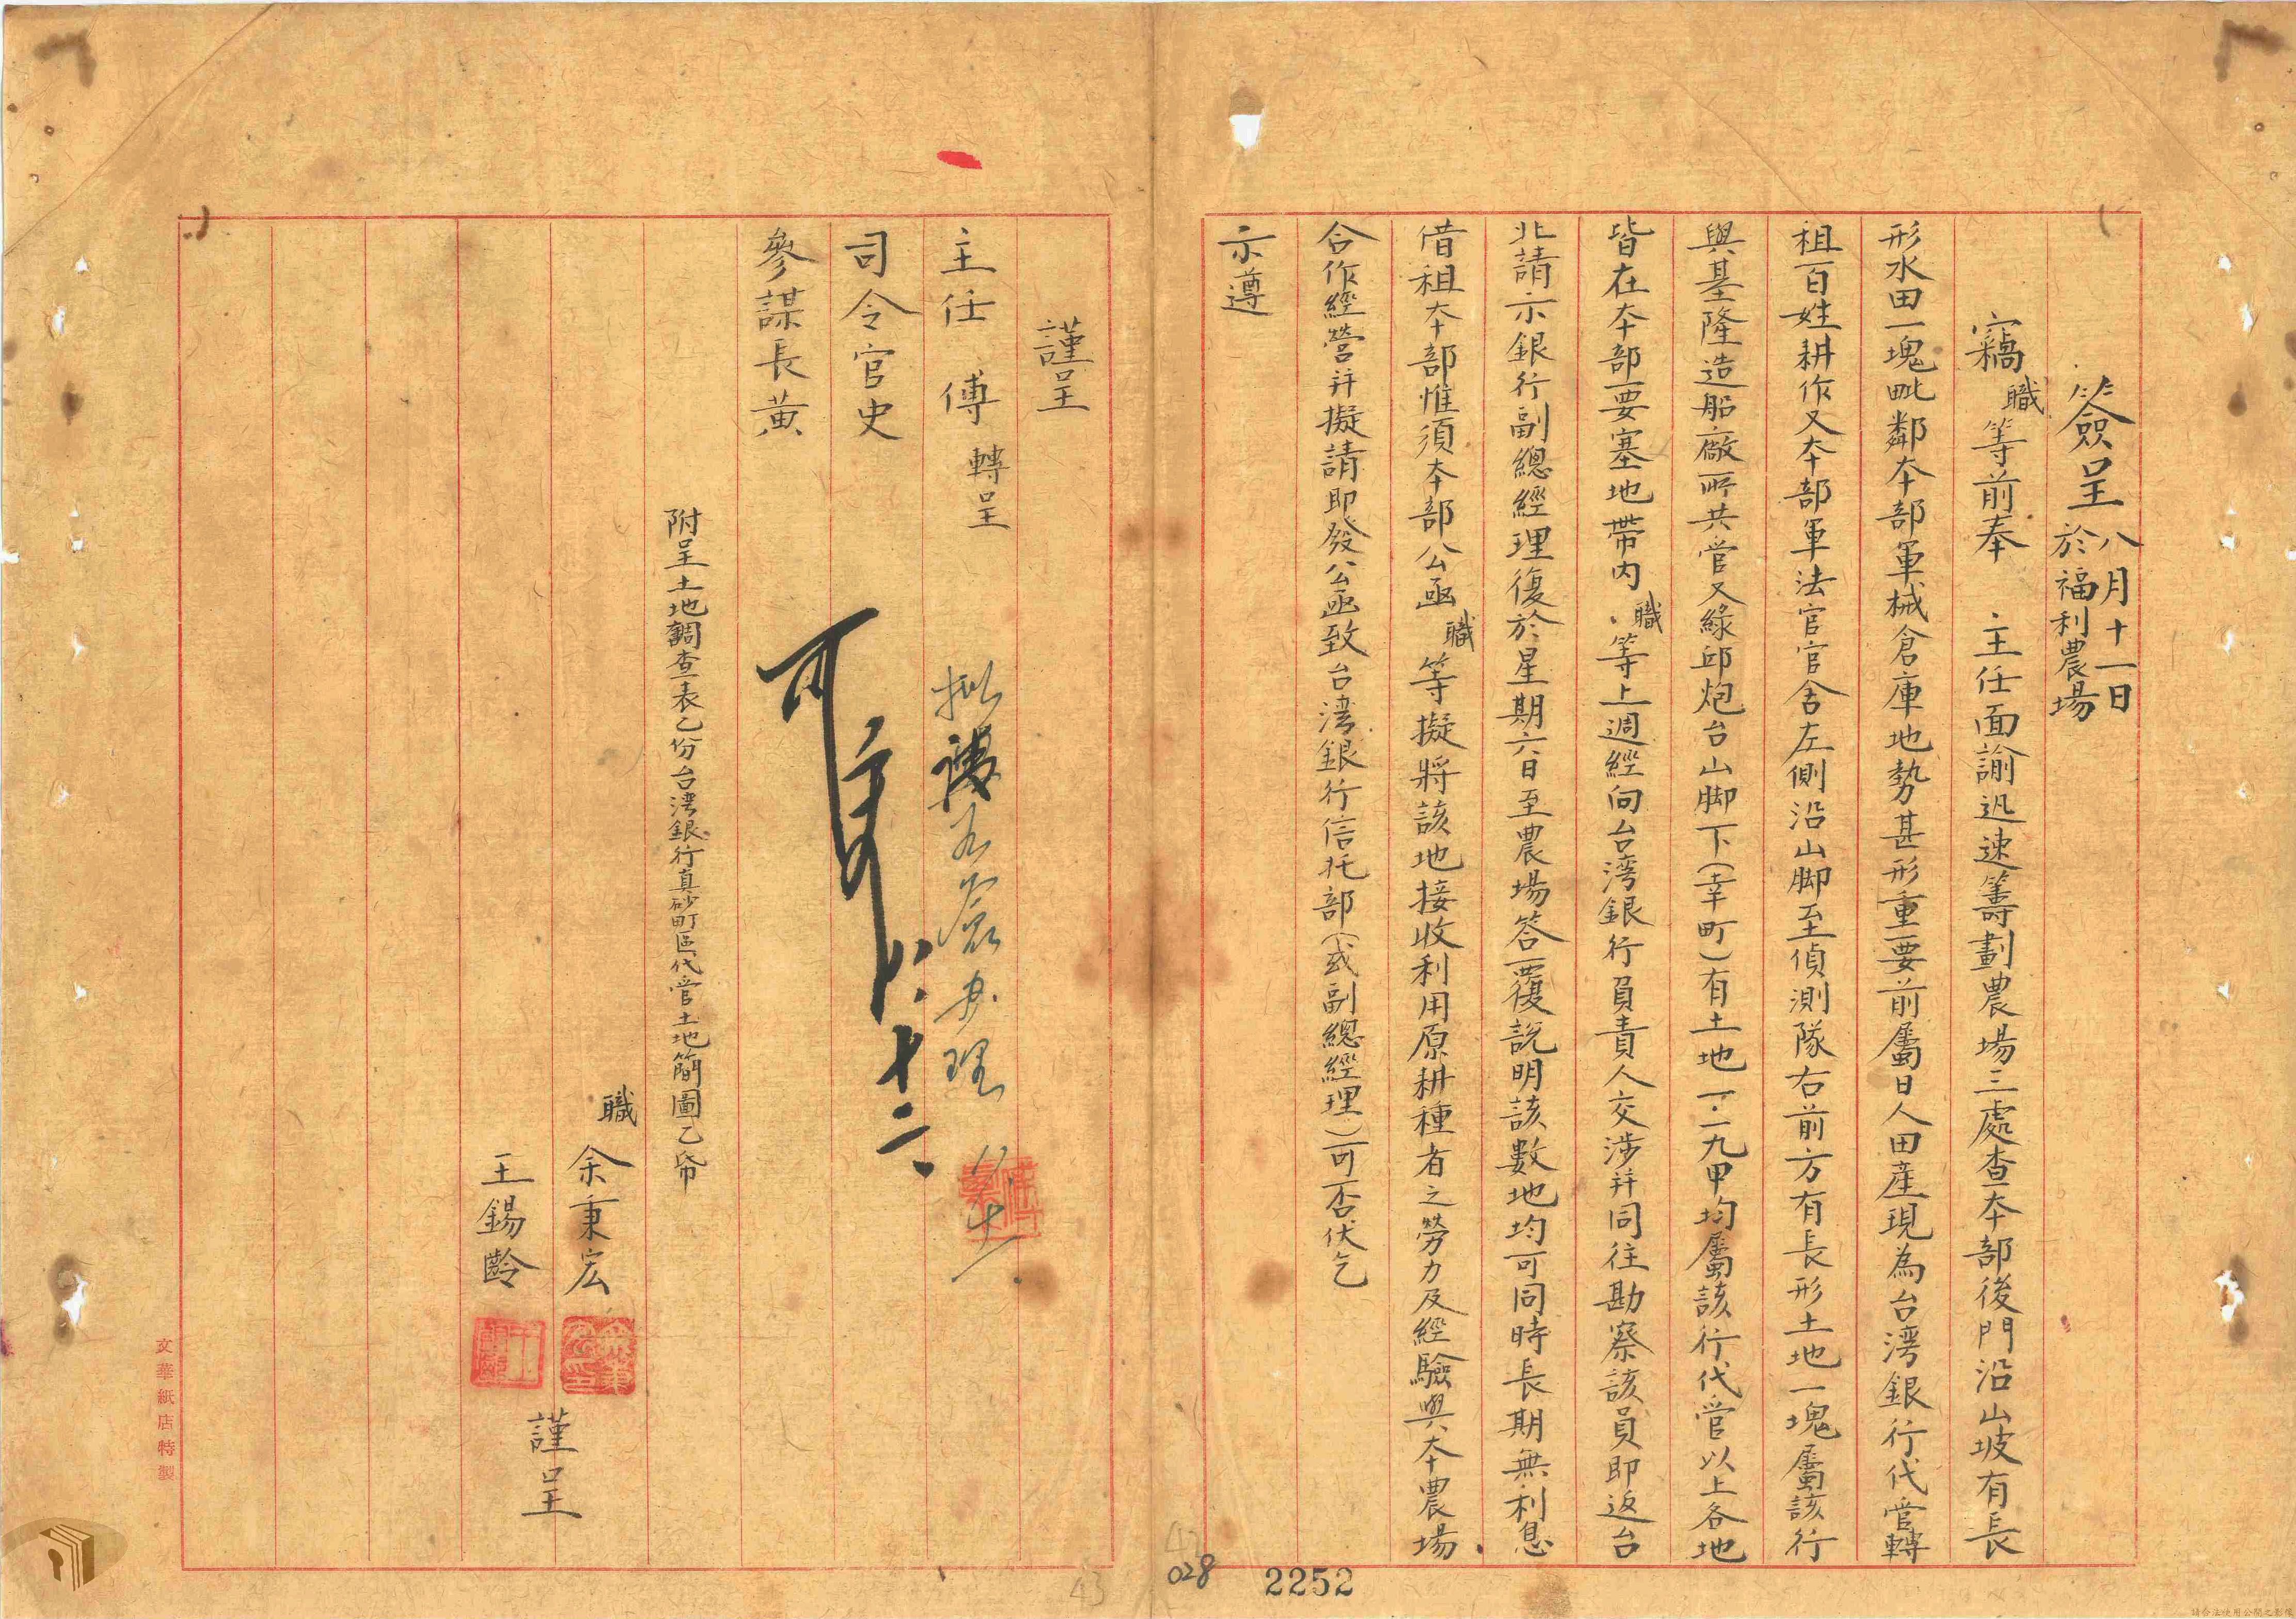 簽呈 八月十一日
於福利農場
竊職等前奉 主任面諭迅速籌劃農場三處查本部後門沿山坡有長
形水田一塊毗鄰本部軍械倉庫地勢甚形重要前屬日人田產現為台湾銀行代管轉
租百姓耕作又本部軍法官官舍左側沿山脚至偵測隊右前方有長形土地一塊屬該行
與基隆造船廠所共管又綠邱炮台山脚下(幸町)有土地一.二九甲均屬該行代管以上各地
皆在本部要塞地帶内職等上週經向台湾銀行負責人交涉并同往勘察該員即返台
北請示銀行副總經理復於星期六日至農場答覆説明該數地均可同時長期無利息
借租本部惟須本部公函職等擬將該地接收利用原耕種者之勞力及經驗與本農場
合作經營并擬請即發公函致台湾銀行信托部(或副總經理)可否伏乞
示遵
謹呈
主任 傅 轉呈
司令官史
參謀長黃
擬
辦理
可
十二
附呈土地調查表乙份台湾銀行真砂町區代管土地簡圖乙帋
職 余秉宏
王錫齡
謹呈
文華紙店特製
43
42
028
2252